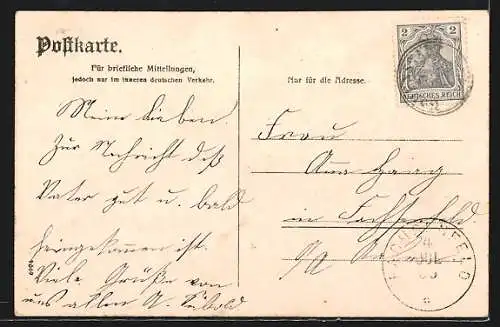 Postkarte.
Für briefliche Mitteilungen,
jedoch nur im inneren deutschen Verkehr.
Nur für die Adresse.
2 2
DEUTSCHES REICH
Meine Lieben.
Zur Nachricht daß
Vater gut u. bald
heimgekommen ist.
Viele Grüße von
uns allen A.
Frau
Anna
in Fachsenfeld
FACHSENFELD
4
JUL